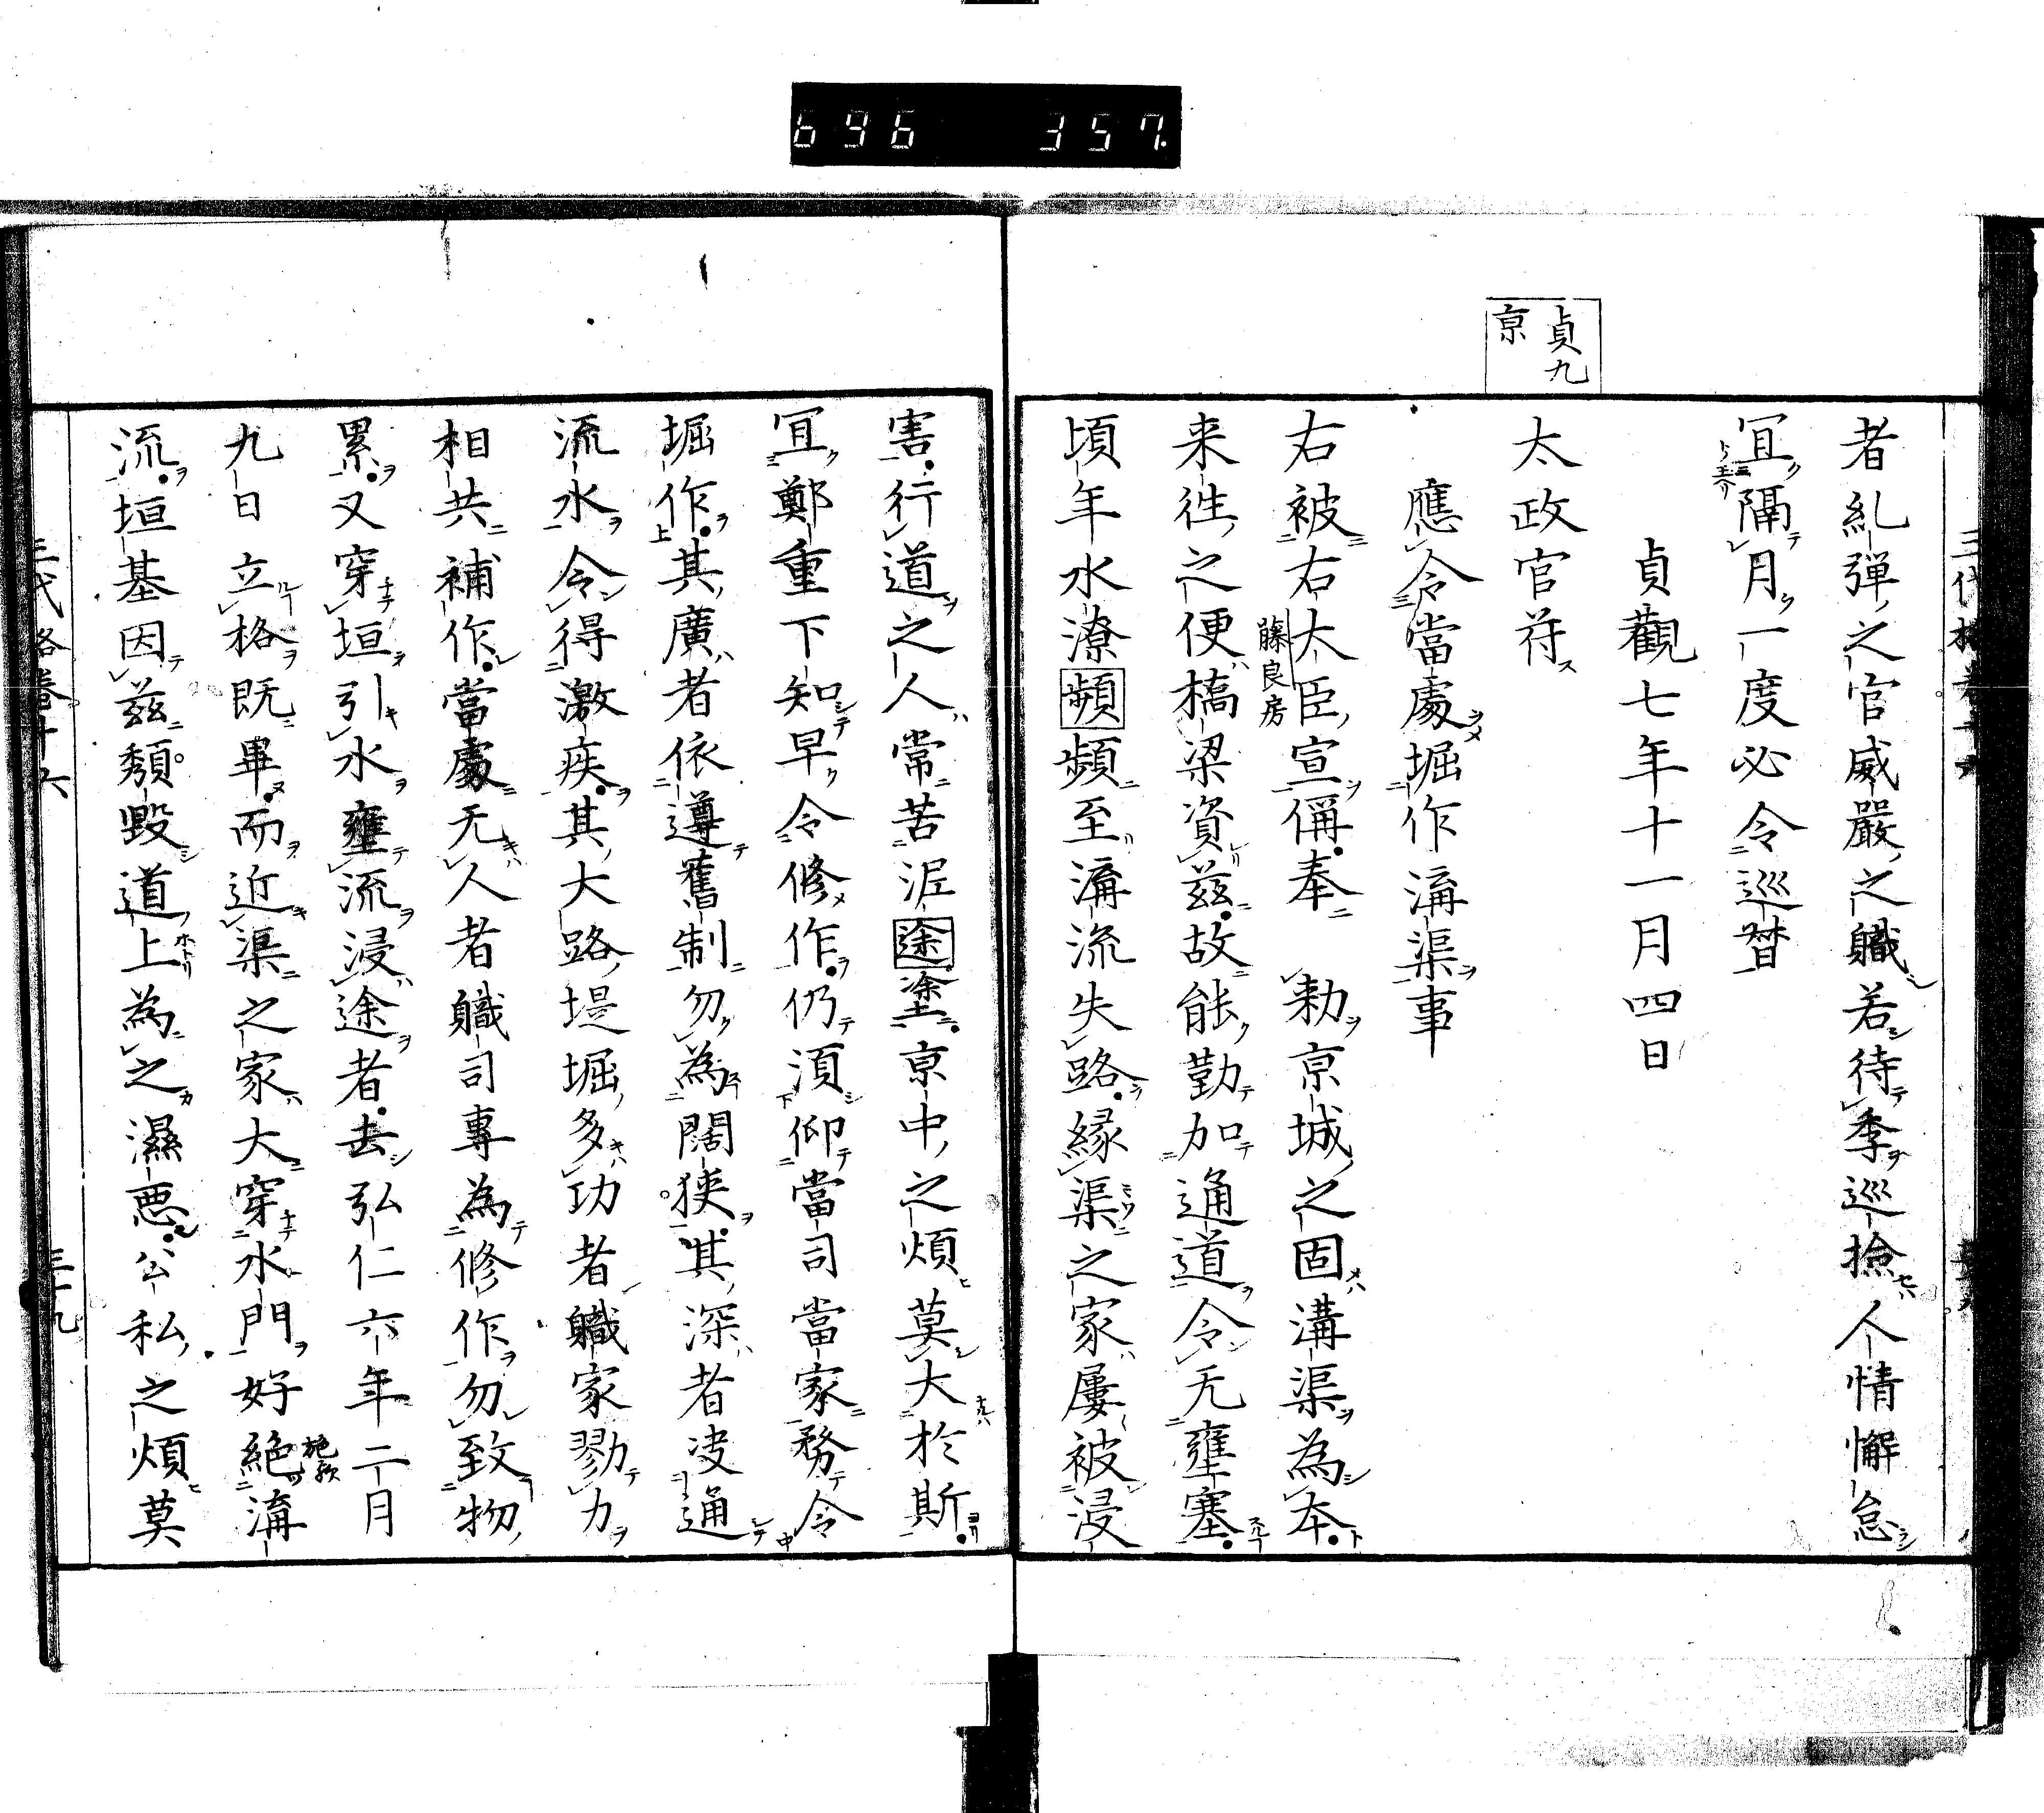 696 357.
貞九
京
者糺弾之官威嚴之職若待季巡撿人情懈怠
冝隔月一度必令巡督
貞觀七年十一月四日
太政官符
應令當處堀作溝渠事
右被右大臣宣偁奉 勅京城之固溝渠為本
藤良房
来徃之便橋梁資茲故能勤加通道令无壅塞
頃年水潦頻頻至溝流失路縁渠之家屢被浸
害行道之人常苦泥途塗京中之煩莫大於斯
冝鄭重下知早令修作仍須仰當司當家務令
堀作其廣者依遵舊制勿為闊狭其深者決通
流水令得激疾其大路堤堀多功者職家勠力
相共補作當處无人者職司專為修作勿致物
累又穿垣引水壅流浸途者去弘仁六年二月
九日立格既畢而近渠之家大穿水門好絶溝
流垣基因茲頽毀道上為之濕悪公私之煩莫
三代格巻十六